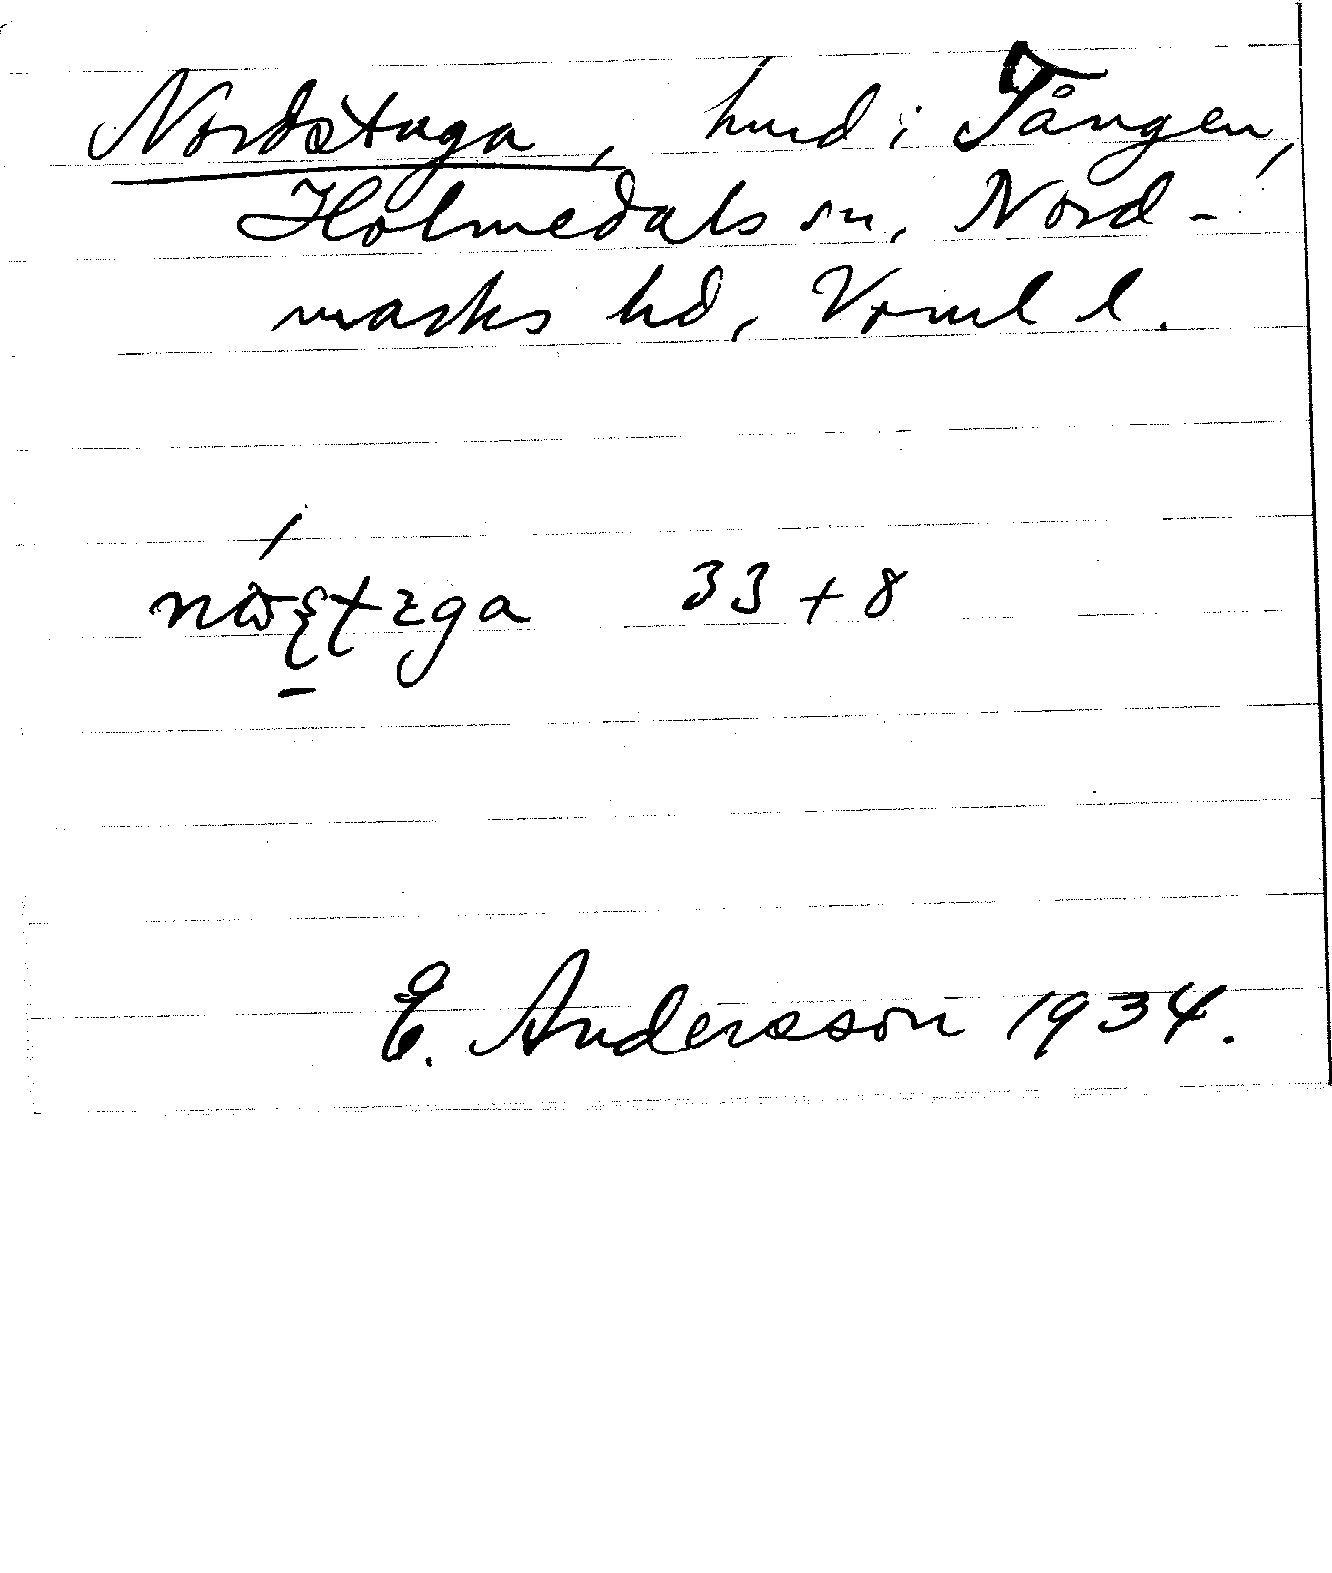 Nordstuga, hmd i Tången,
Holmedals sn, Nord-
marks hd, Vrml l.
33 + 8
E. Andersson 1934.